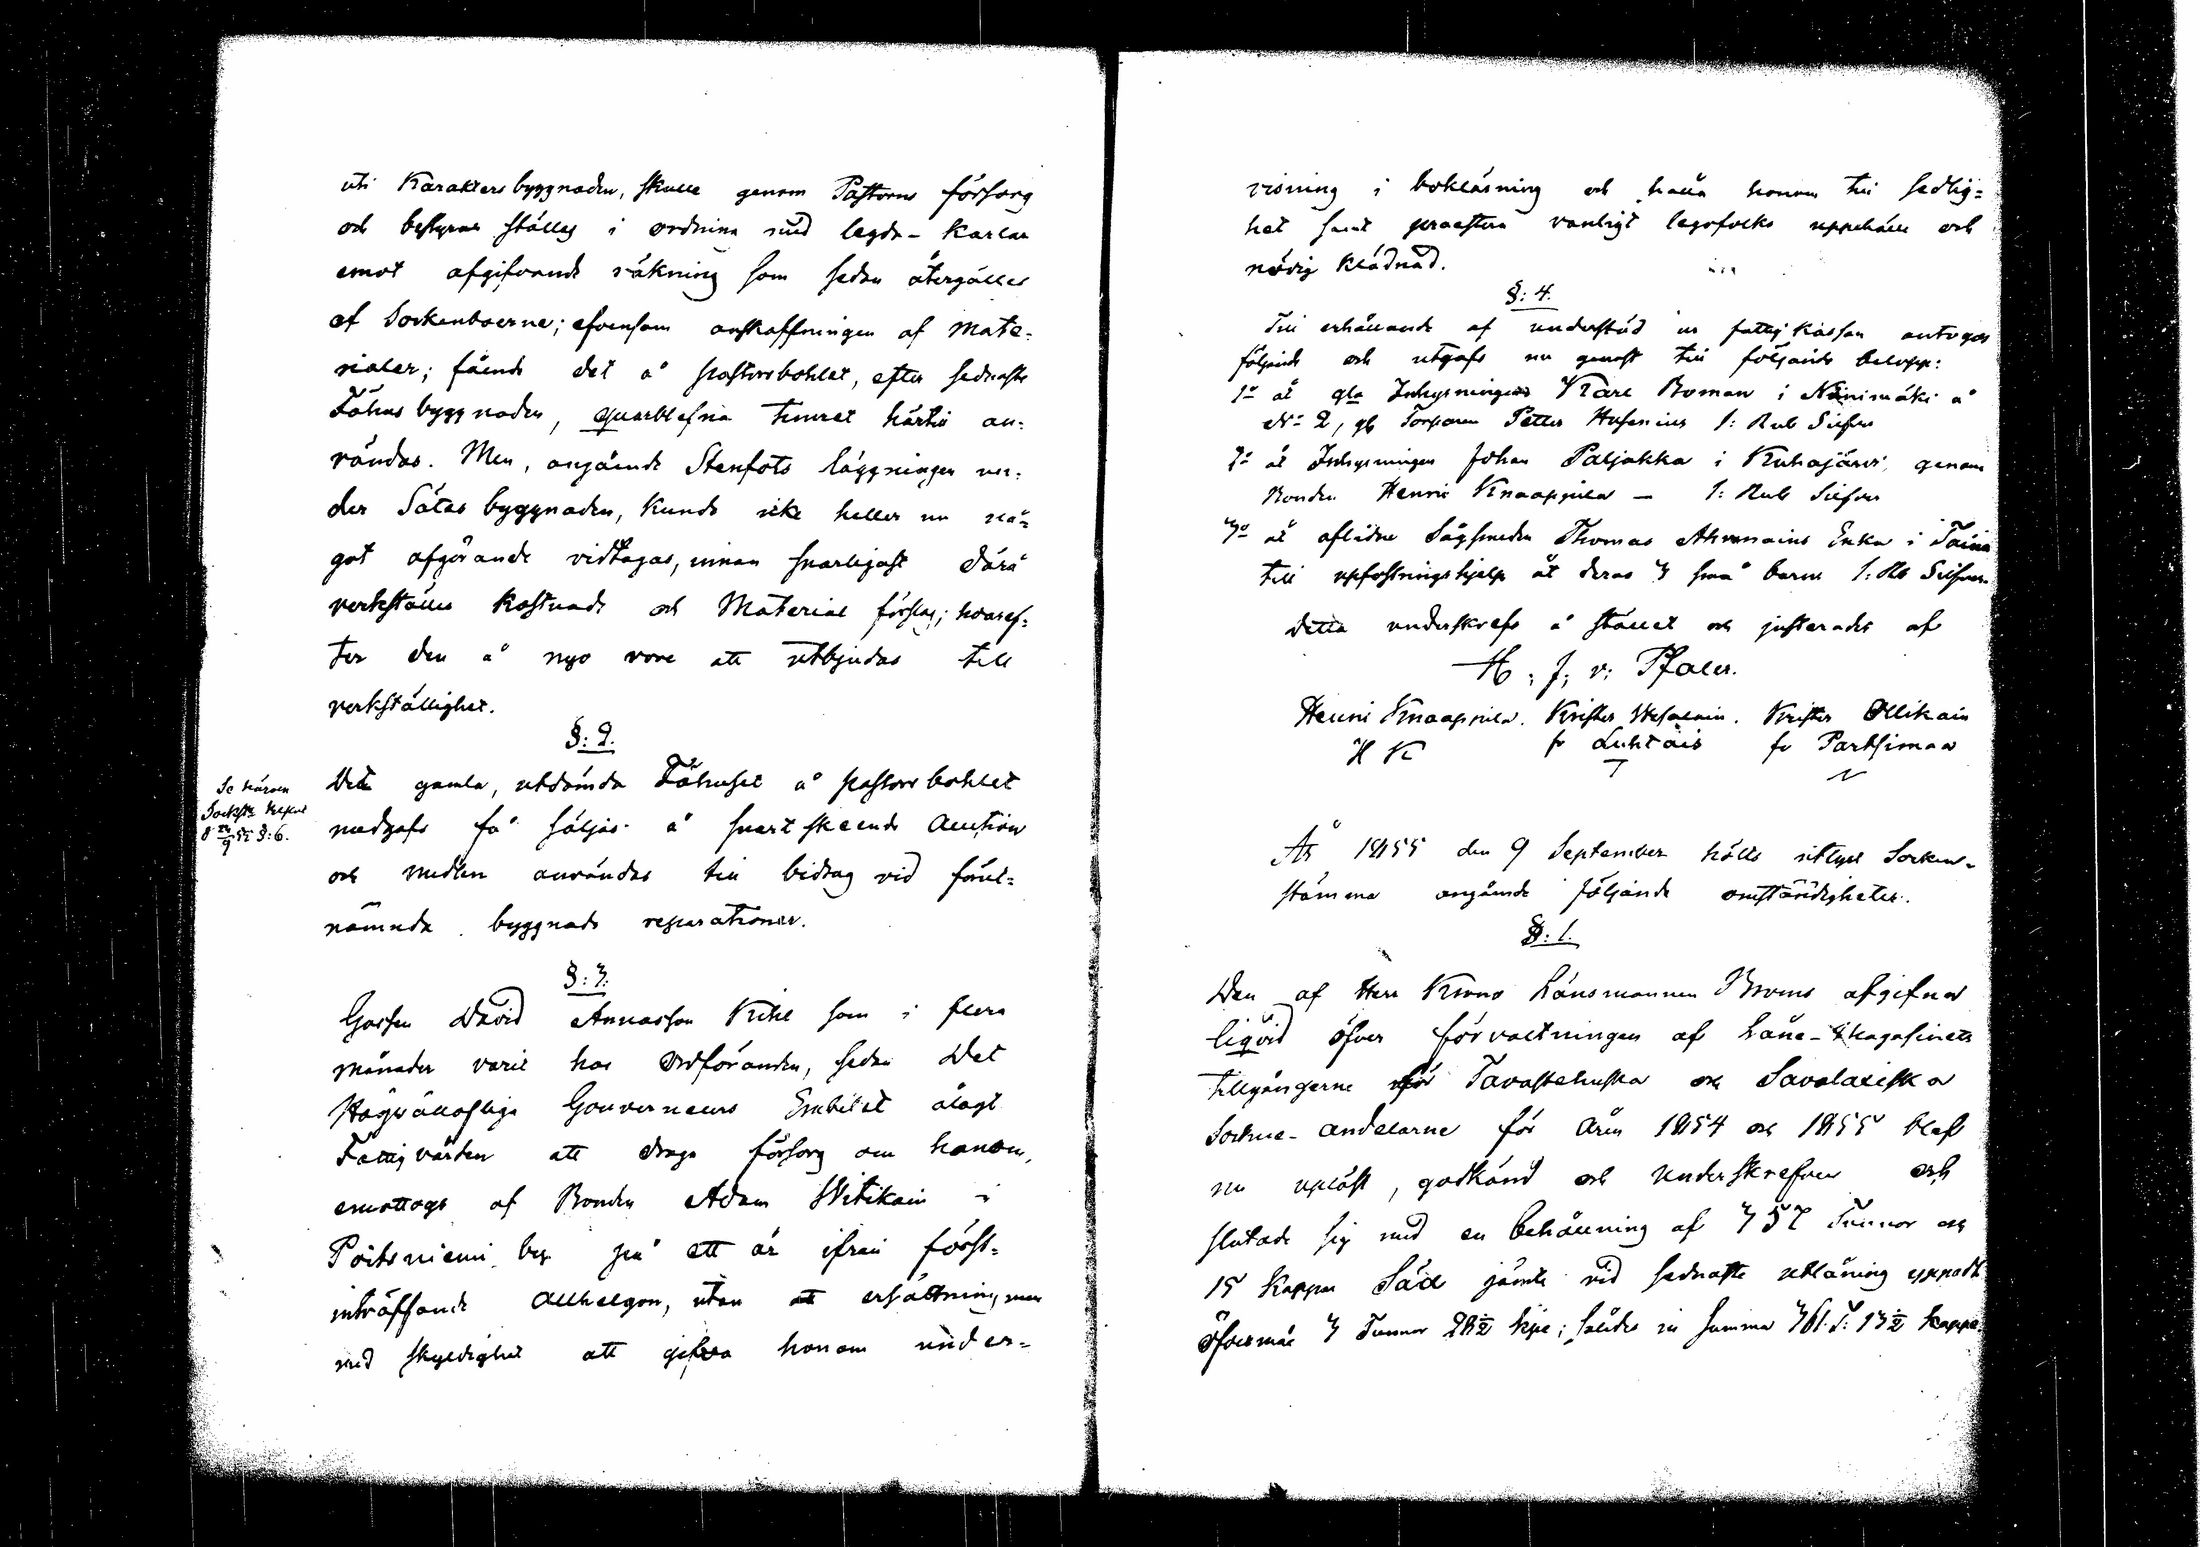 uti Karaktersbyggnaden, skulle genom Pastorns försorg
och bestyras ställas i ordning med legda-Karlar
emot afgifvande räkning som sedan återgälles
af Sockenboerne; äfvensom anskaffningen af Mate-
rialer; fående det å pastorsbohlet, efter sednaste
Fähus byggnaden, quarblefna timret härtill an-
vändas. Men, angående Stenfots läggningen un-
der Sätas byggnaden, kunde icke heller nu nå-
got afgörande vidtagas, innan snarligast därå
verkställes Kostnads och Material förslag; hvaref-
ter den å nyo vore att utbjudas till
verkställighet.
§: 2.
Se härom
Sockst:
§: 6.
Det gamla, utdömda Fähuset å pastorsbohlet
medgafs få säljas å snart skeende Auction
och medlen användas till bidrag vid förut-
nämnda byggnads reparationer.
§: 3.
Gossen David Annasson Kihl som i flera
månader varit hos Ordföranden, sedan Det
Högvällofliga Gouverneurs Embetet ålagt
Fattigvården att draga försorg om honom,
emottogs af Bonden Adam Witikain i
Poitsniemi by på ett år ifrån först-
inträffande Allhelgon, utan ersättning, men
med skyldighet att gifva honom under-
visning i bokläsning och hålla honom till sedlig-
het samt praestera vanligt legofolks uppehälle och
nödig klädnad.
§: 4.
Till erhållande af understöd ur fattigkassan antogos
följande och utgafs nu genast till följande belopp:
1o åt gla Inhysningen Karl Boman i Niinimäki å
No 2, gb Torparen Petter Husenius 1: Rub Silfver
2o åt Inhysningen Johan Paljakka i Kuhajärvi, genom
Bonden Henric Knaapila — 1: Rub Silfver
3o åt aflidne Sågsmeden Thomas Ahvonains Enka i Taina
till upfostringshjelp åt deras 3 små barn 1: Rb Silfver
Detta underskrefs å stället och justerades af
H. J. v: Pfaler.
Henric Knaapila. Krister Wesalain. Krister Ollikain
H K fr Luhtais fr Partsimaa
År 1855 den 9 September hölls utlyst Socken-
stämma angående följande omständigheter.
§: 1.
Den af Herr Krono Länsmannen Broms afgifna
liqvid öfver förvaltningen af Låne-Magasinets
tillgångerne för Tavastehuska och Savolaxiska
Sockne-andelarne för åren 1854 och 1855 blef
nu upläst, godkänd och underskrefven och
slutade sig med en behållning af 357 Tunnor och
15 kappar Säd jämte vid sednaste utlåning uppadt
öfvermål 3 Tunnor 28½ kpr; således in summa 361. T: 13½ kappe